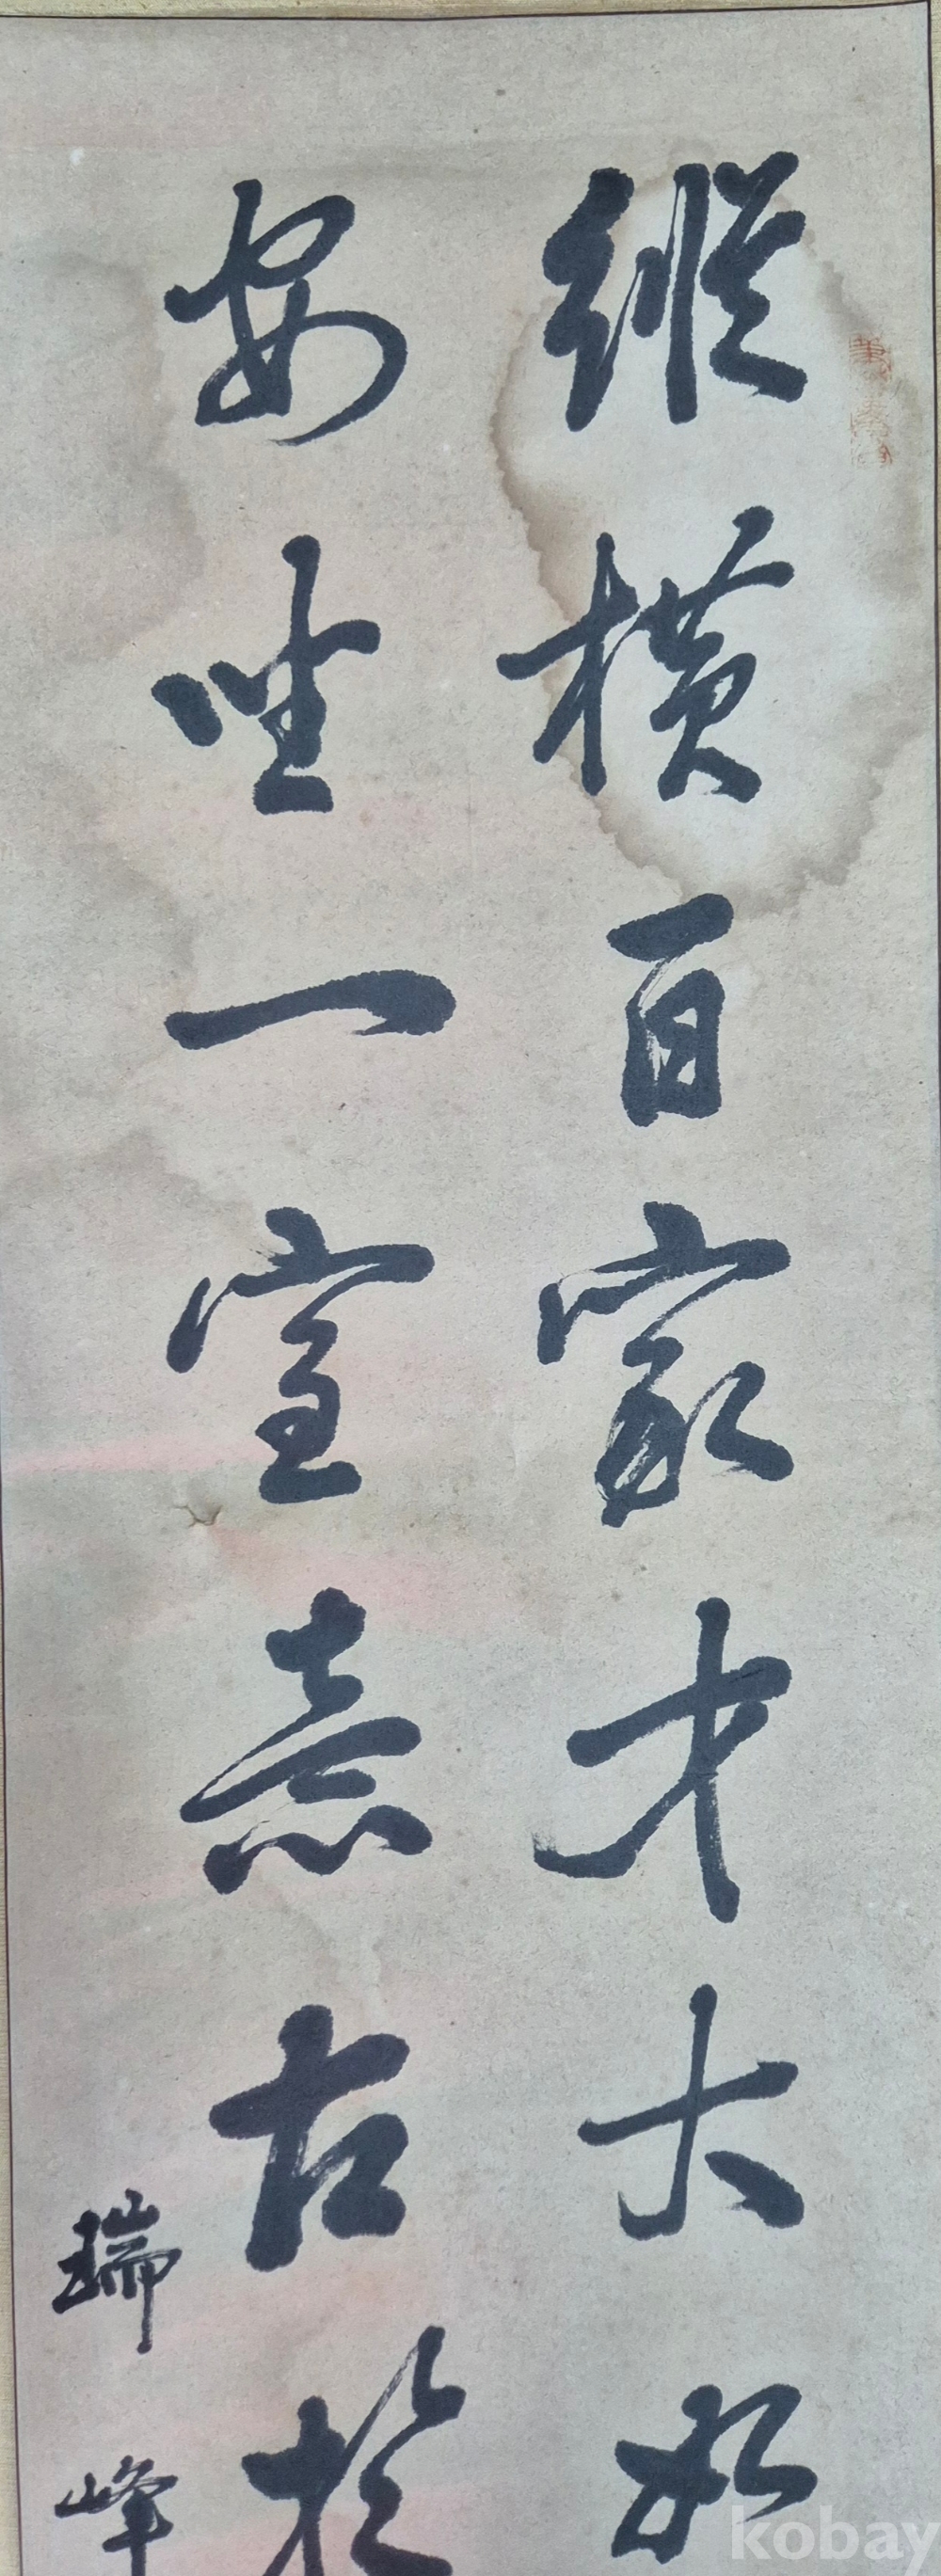 縱橫百家才大如
安坐一室意古於
瑞峰
kobay